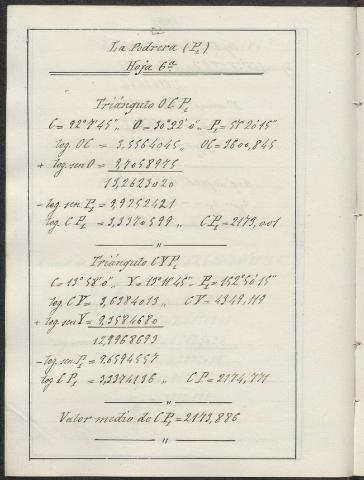 La Pedrera (P₂)
Hoja 6ª
Triángulo O C P₂
C = 92° 7' 45" „ O = 30° 32' 0" „ P₂ = 57° 20' 15"
log. OC = 3,5564045 „ OC = 3600,845
+ log. sen O = 9,7058975
13,2623020
- log. sen. P₂ = 9,9252421
log. C P₂ = 3,3370599 „ C P₂ = 2173,001
"
Triángulo C V P₂
C = 13° 58' 0" „ V = 13° 11' 45" „ P₂ = 152° 50' 15"
log. C V = 3,6384013 „ C V = 4349,119
+ log. sen V = 9,3584680
12,9968693
- log. sen P₂ = 9,6594557
log. C P₂ = 3,3374136 „ C P = 2174,771
"
Valor medio de C P₂ = 2173,886
"